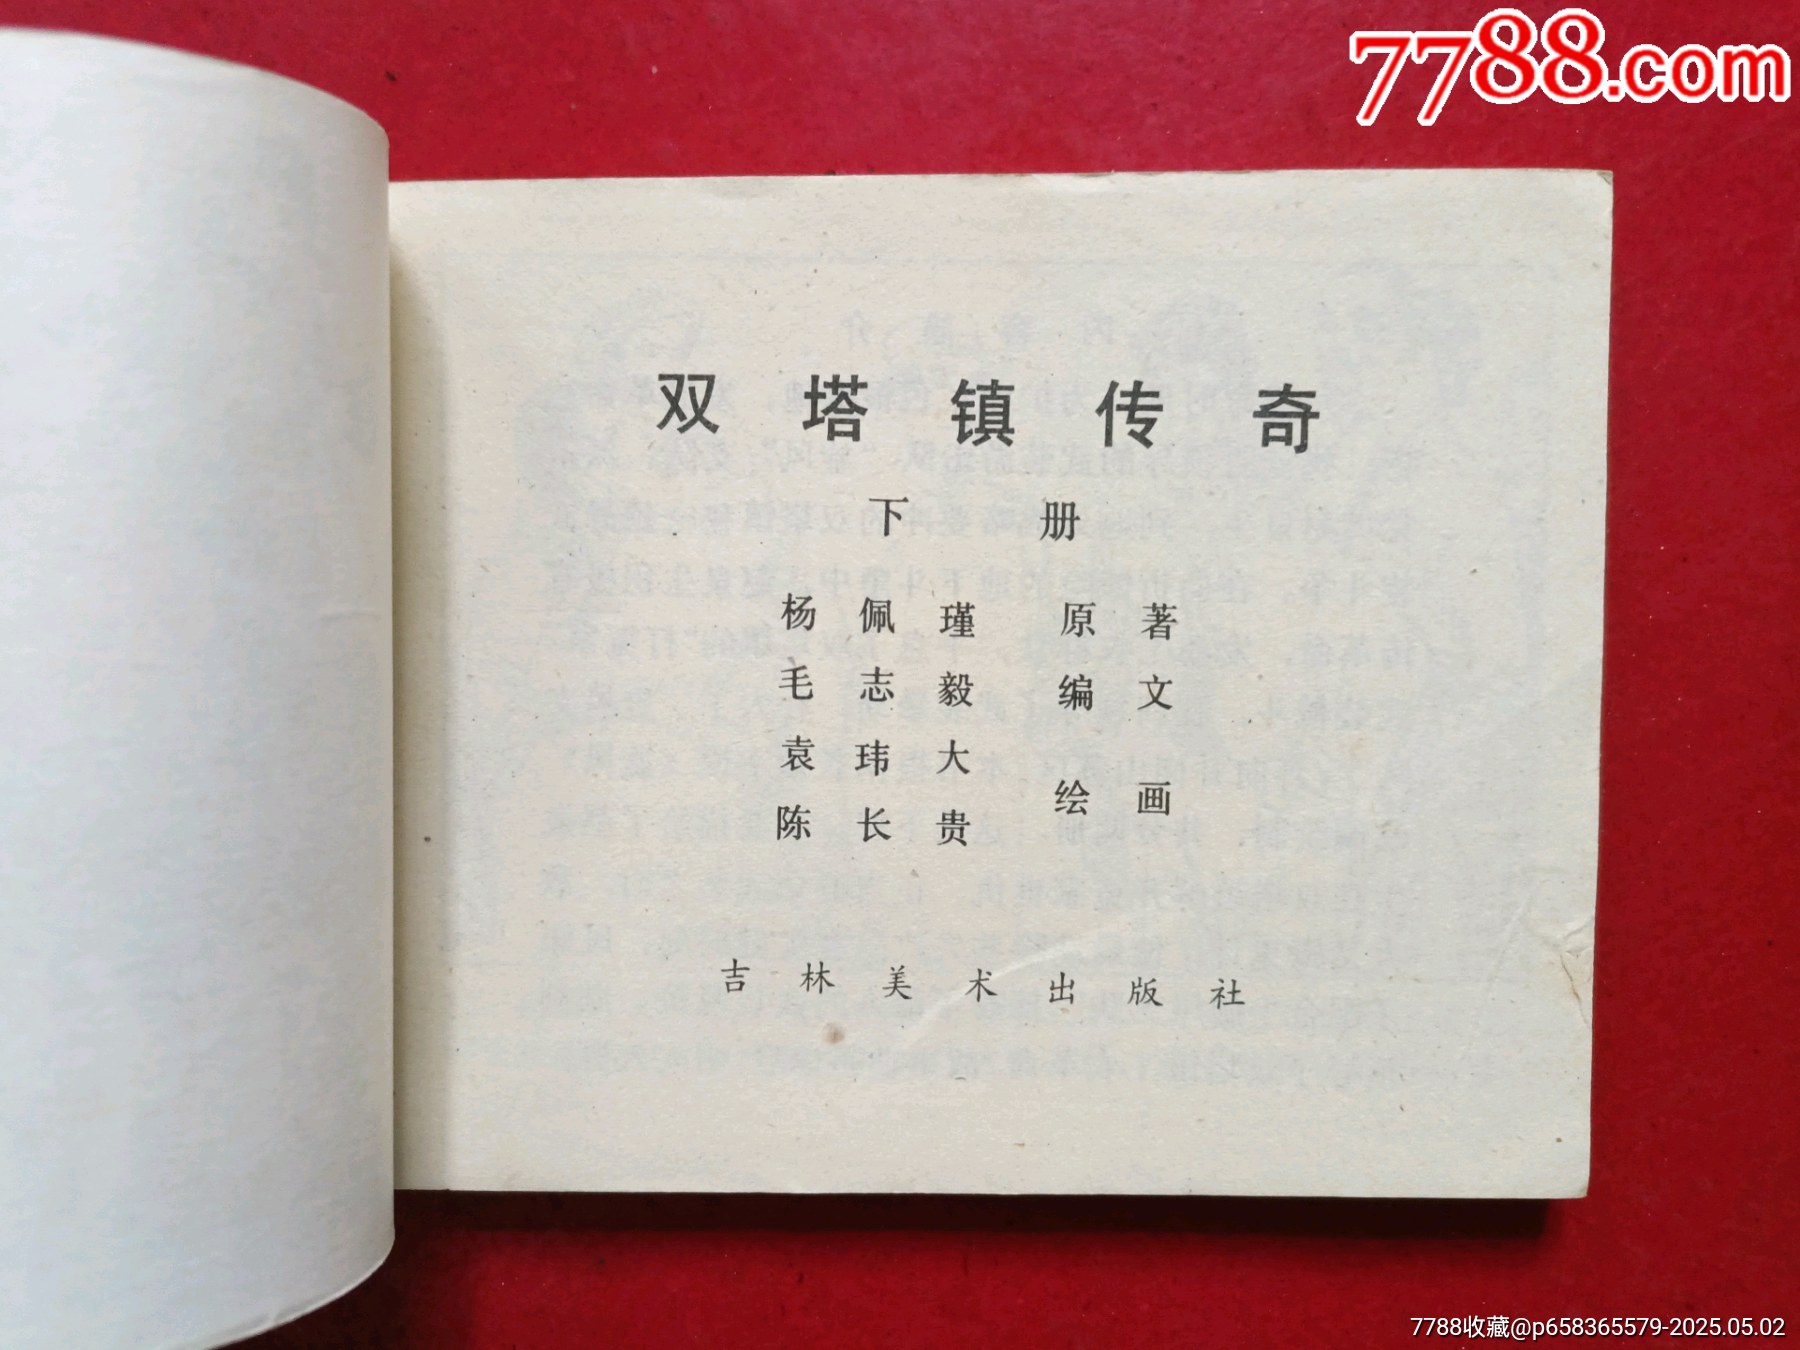 7788.com
双塔镇传奇
下册
杨佩瑾 原著
毛志毅 编文
袁玮大
陈长贵 绘画
吉林美术出版社
7788收藏@p658365579-2025.05.02